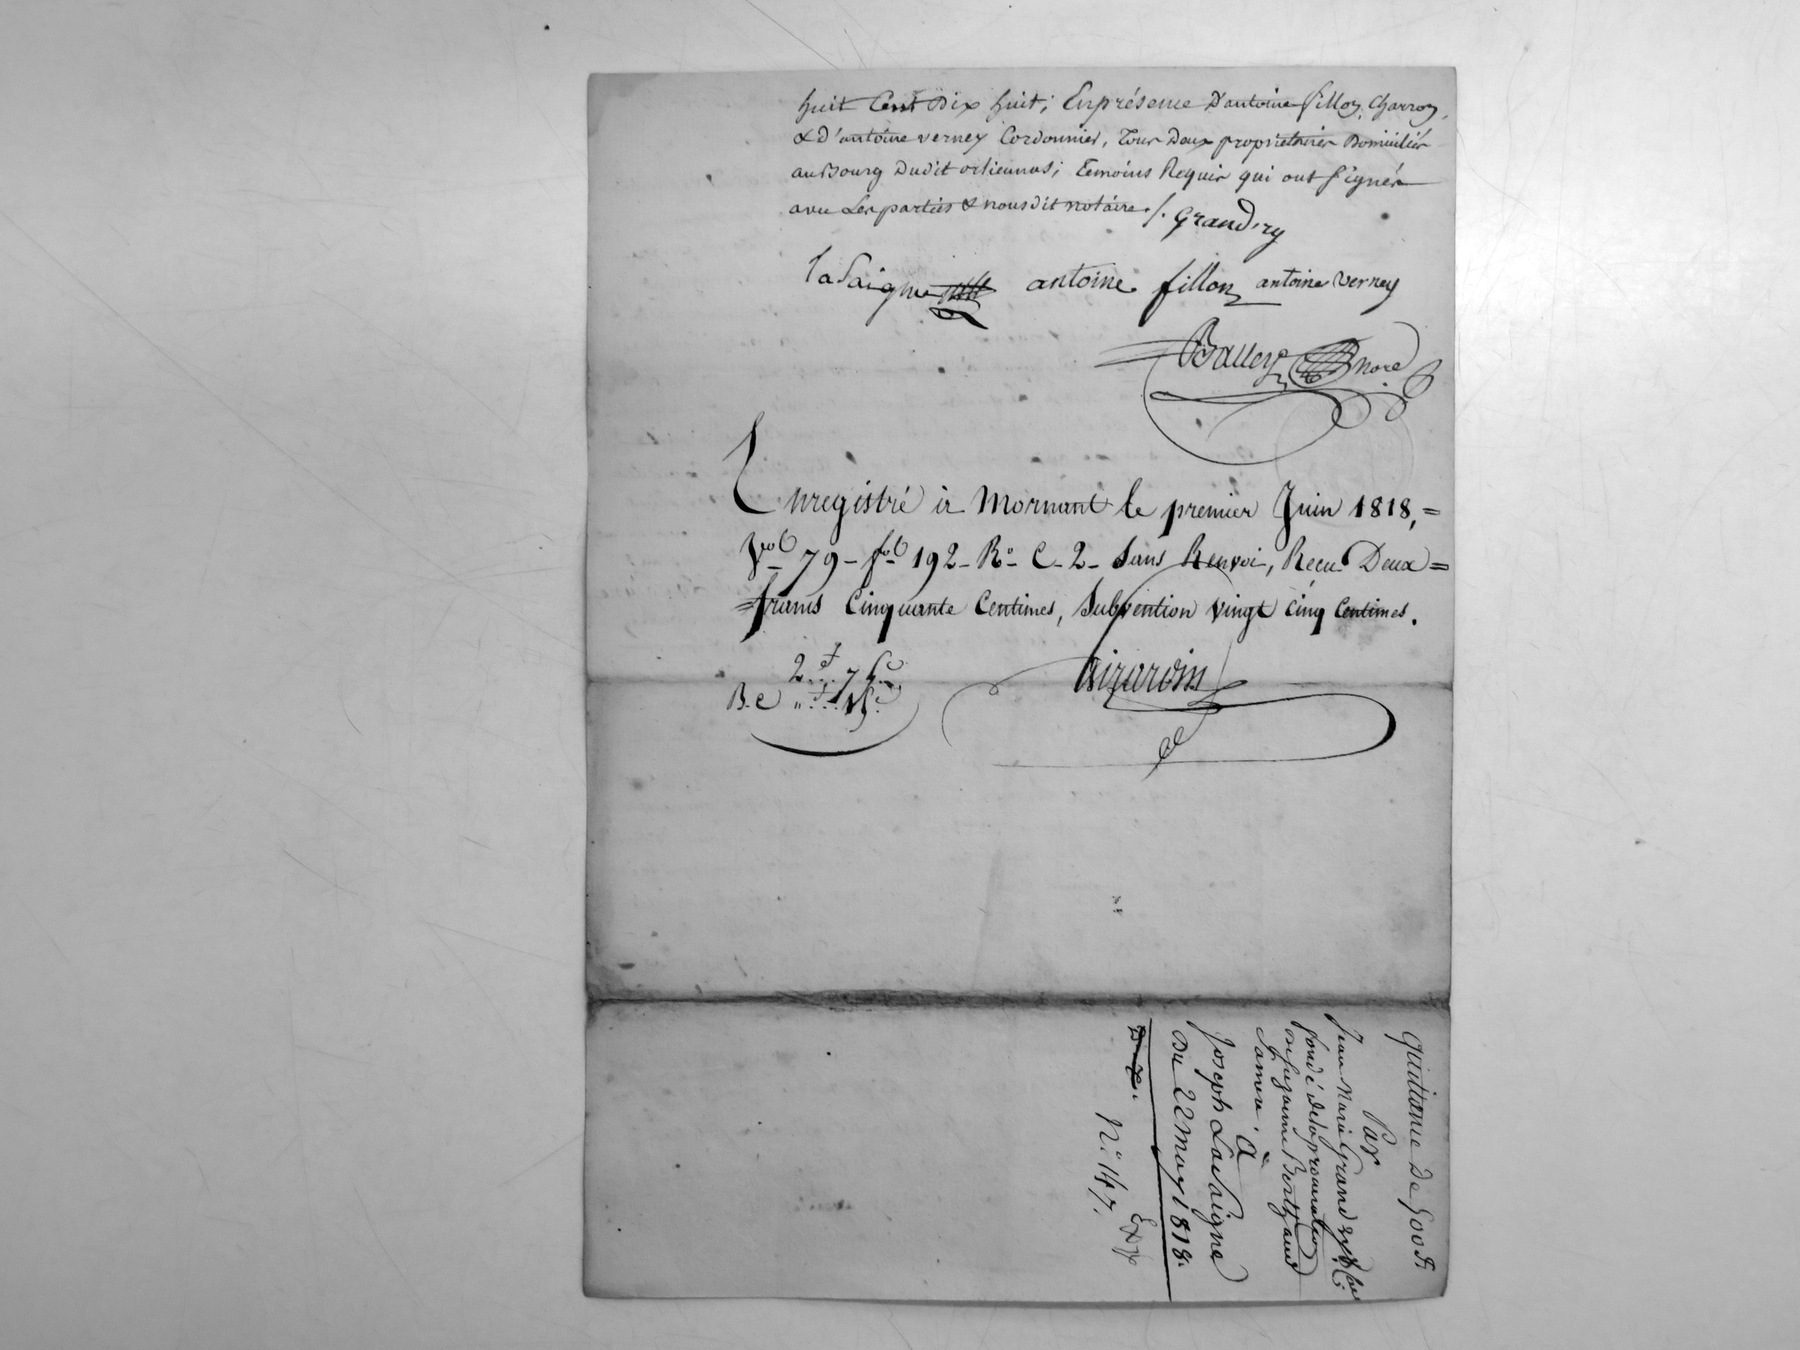 huit Cent Dix huit; Enprésence D'antoine fillon, Charron,
& D'antoine verney Cordonnier, Tous Deux propriétaires Domiciliés
au Bourg Dudit orlienas; Temoins Requis qui ont signés
avec Les parties & nous dit notaire./. Grandry
laSaigne antoine fillon antoine verney
Balley nore
Enregistré à Mornant le premier Juin 1818,=
Vol 79 - fol 192 - Ro - C - 2 - Sans Renvoi, Recu Deux=
=francs Cinquante Centimes, Subvention vingt cinq Centimes.
2f..75c
Girardin
quittance De 500 fr
Par
Jean Marie Grandry
fondé de la procuration
à
Joseph LaSaigne
Du 22 may 1818.
Exp
N.o 147.